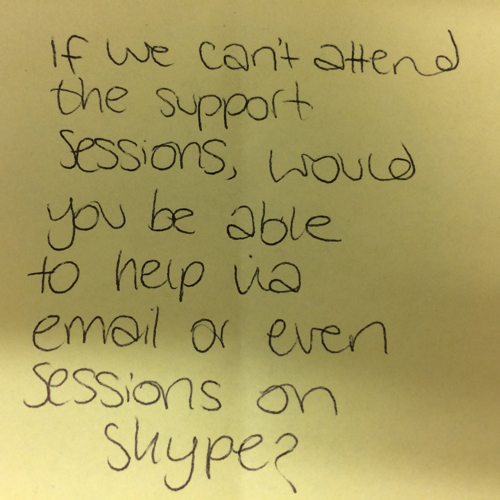 If we can't attend
the support
sessions, would
you be able
to help via
email or even
sessions on
Skype?